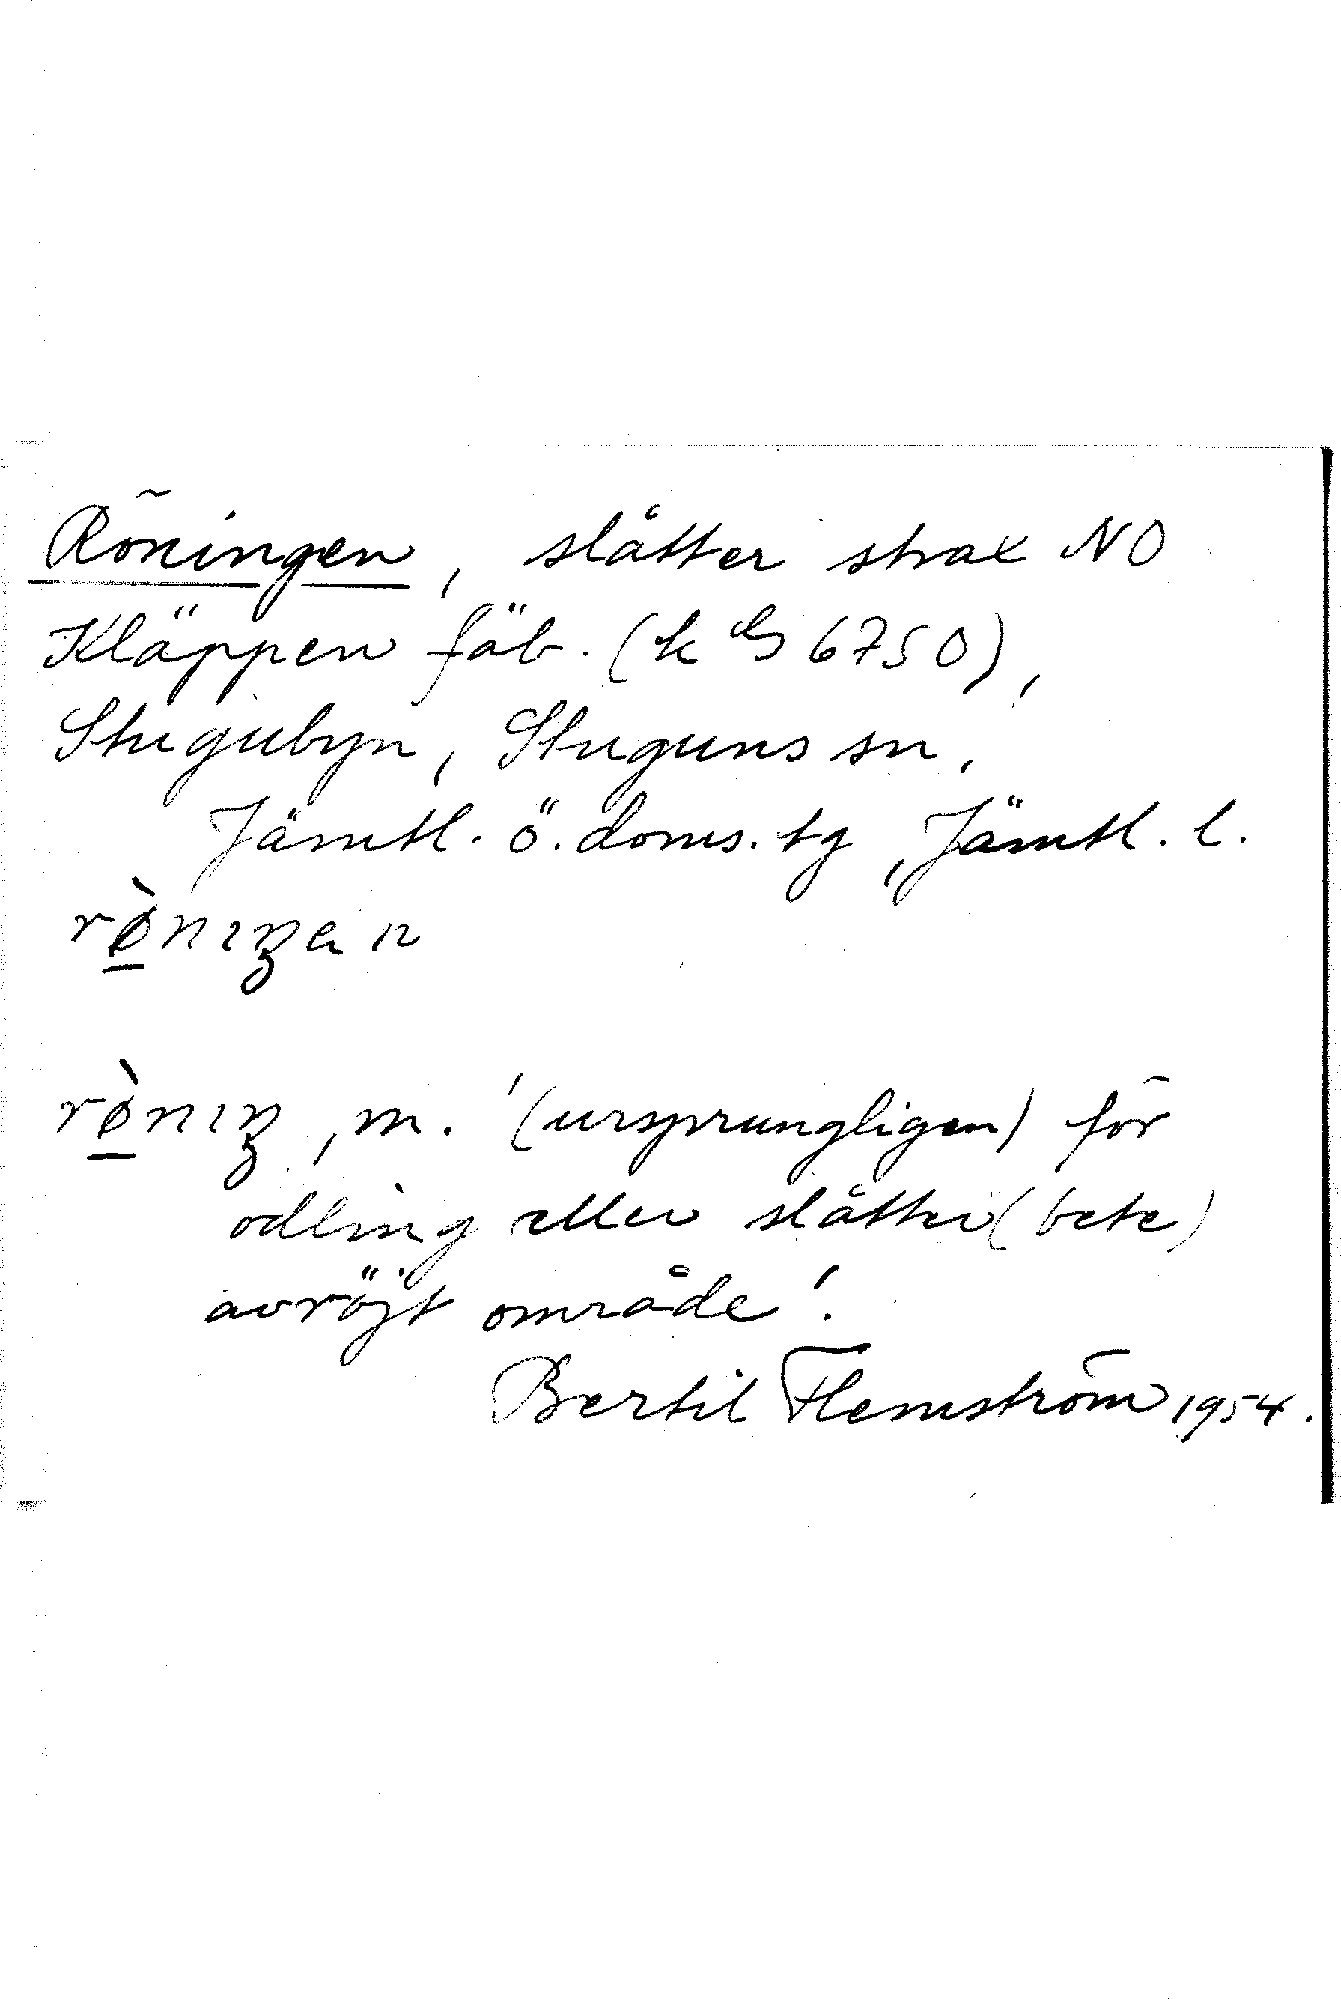 Röningen, slåtter strax NO
Kläppen fäb. (k 6750),
Stugubyn, Stuguns sn,
Jämtl. ö. doms. tg, Jämtl. l.
rø̀nıŋen
rø̀nıŋ, m. '(ursprungligen) för
odling eller slåtter (bete)
avröjt område'.
Bertil Flemström 1954.